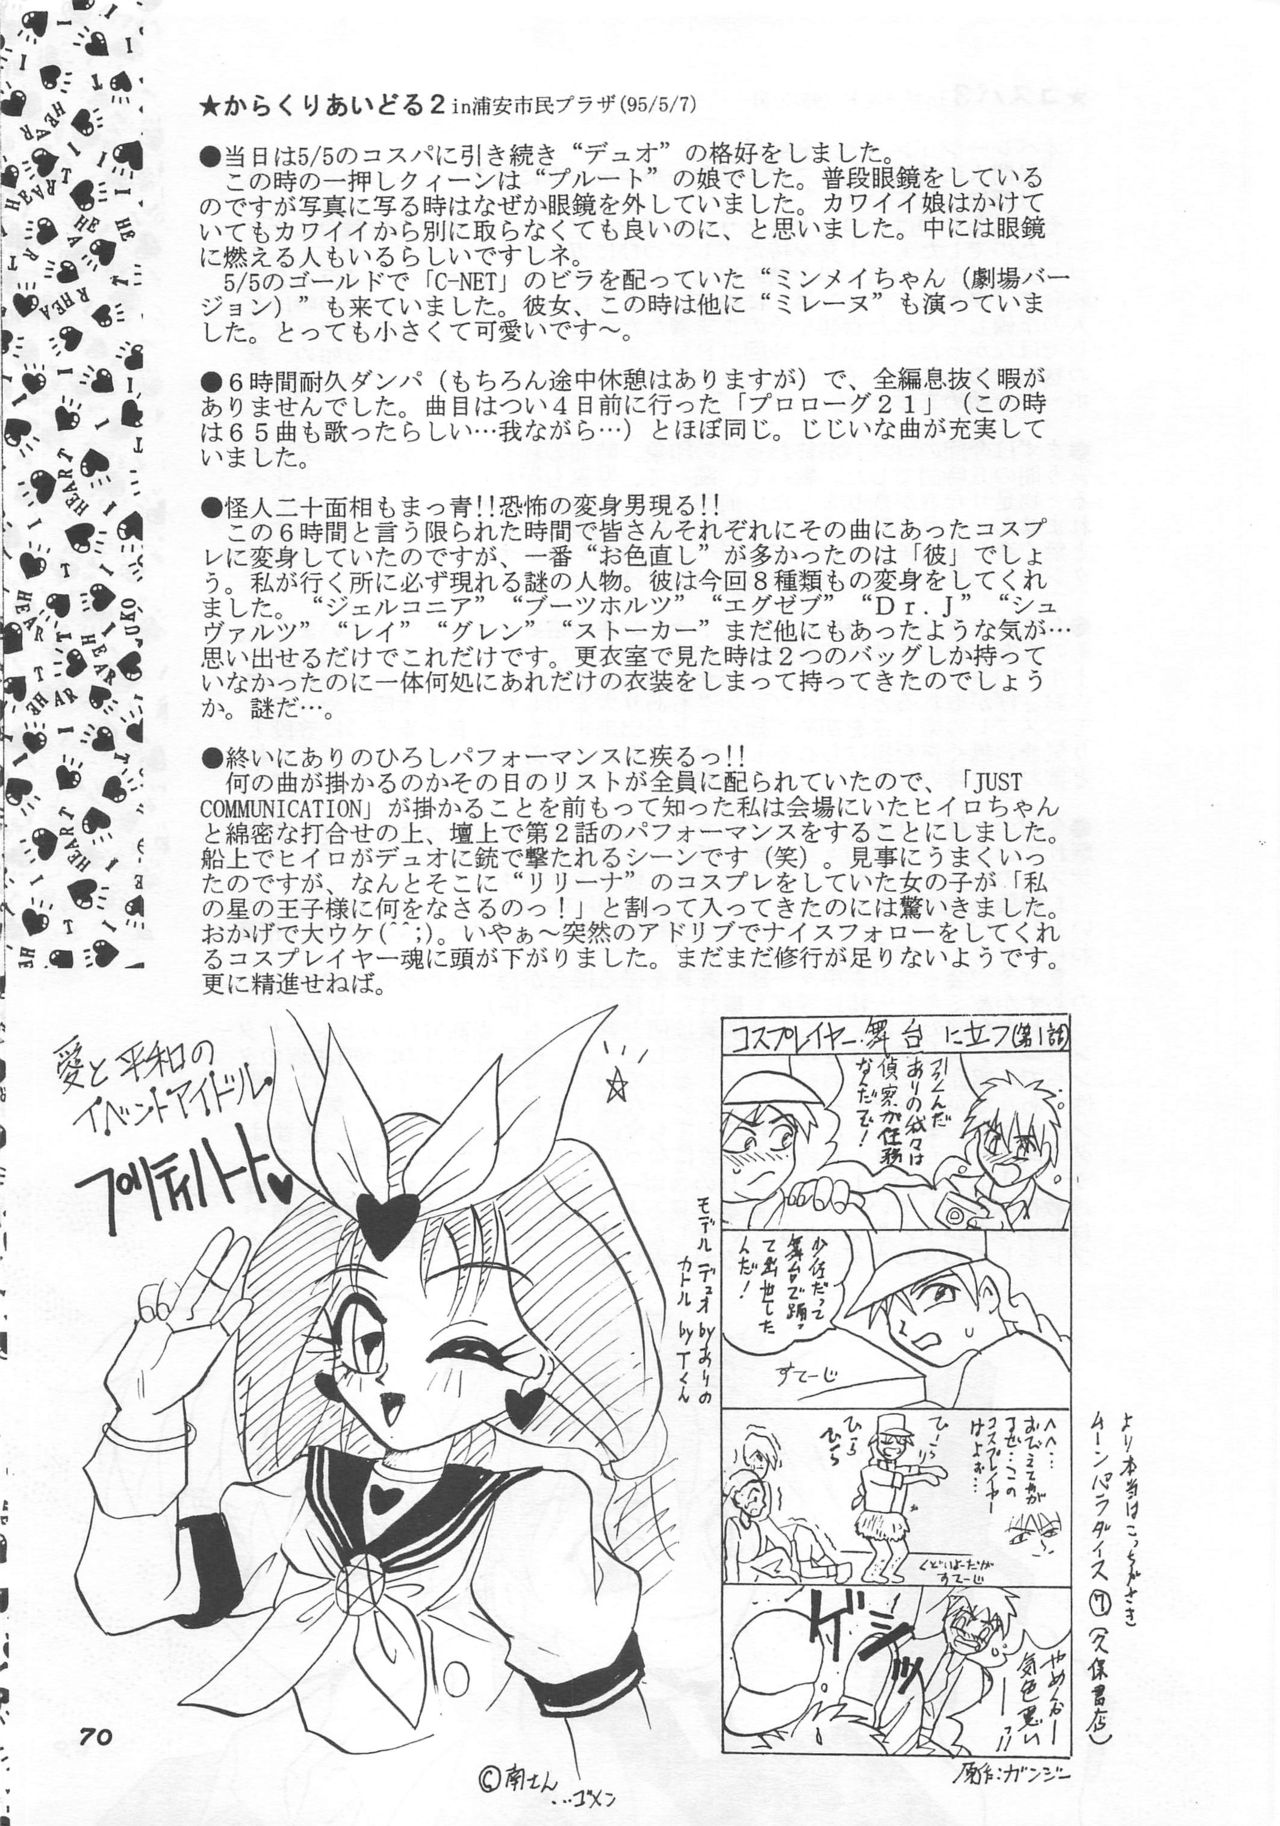 ★からくりあいどる２in浦安市民プラザ(95/5/7)
●当日は5/5のコスパに引き続き“デュオ”の格好をしました。
この時の一押しクィーンは“プルート”の娘でした。普段眼鏡をしている
のですが写真に写る時はなぜか眼鏡を外していました。カワイイ娘はかけて
いてもカワイイから別に取らなくても良いのに、と思いました。中には眼鏡
に燃える人もいるらしいですしネ。
5/5のゴールドで「C-NET」のビラを配っていた“ミンメイちゃん（劇場バー
ジョン）”も来ていました。彼女、この時は他に“ミレーヌ”も演っていま
した。とっても小さくて可愛いです～。
●６時間耐久ダンパ（もちろん途中休憩はありますが）で、全編息抜く暇が
ありませんでした。曲目はつい４日前に行った「プロローグ２１」（この時
は６５曲も歌ったらしい…我ながら…）とほぼ同じ。じじいな曲が充実して
いました。
●怪人二十面相もまっ青!!恐怖の変身男現る!!
この６時間と言う限られた時間で皆さんそれぞれにその曲にあったコスプ
レに変身していたのですが、一番“お色直し”が多かったのは「彼」でしょ
う。私が行く所に必ず現れる謎の人物。彼は今回８種類もの変身をしてくれ
ました。“ジェルコニア”“ブーツホルツ”“エグゼブ”“Ｄｒ.Ｊ”“シュ
ヴァルツ”“レイ”“グレン”“ストーカー”まだ他にもあったような気が…
思い出せるだけでこれだけです。更衣室で見た時は２つのバッグしか持って
いなかったのに一体何処にあれだけの衣装をしまって持ってきたのでしょう
か。謎だ…。
●終いにありのひろしパフォーマンスに疾るっ!!
何の曲が掛かるのかその日のリストが全員に配られていたので、「JUST
COMMUNICATION」が掛かることを前もって知った私は会場にいたヒイロちゃん
と綿密な打合せの上、壇上で第２話のパフォーマンスをすることにしました。
船上でヒイロがデュオに銃で撃たれるシーンです（笑）。見事にうまくいっ
たのですが、なんとそこに“リリーナ”のコスプレをしていた女の子が「私
の星の王子様に何をなさるのっ！」と割って入ってきたのには驚いきました。
おかげで大ウケ(^^;)。いやぁ～突然のアドリブでナイスフォローをしてくれ
るコスプレイヤー魂に頭が下がりました。まだまだ修行が足りないようです。
更に精進せねば。
愛と平和の
イベントアイドル・
プリティハート♥
コスプレイヤー舞台に立つ(第1話)
引くんだ
ありの我々は
偵察が任務
なんだぞ！
少佐だって
舞台で踊っ
て出世した
んだ！
すてーじ
へへ…
おびえてやが
るぜ…この
コスプレイヤー
はよぉ…
ひーらりー
ひらひら
くどいよーだが
すてーじ
ゲシッ
やめんかー
気色悪い
ーっ!!
モデル デュオ by ありの
カトル by Tくん
より本当はこっちがさき
ムーンパラダイス⑦（久保書店）
原作:ガンジー
©南さん
...ゴメン
70
I HEART